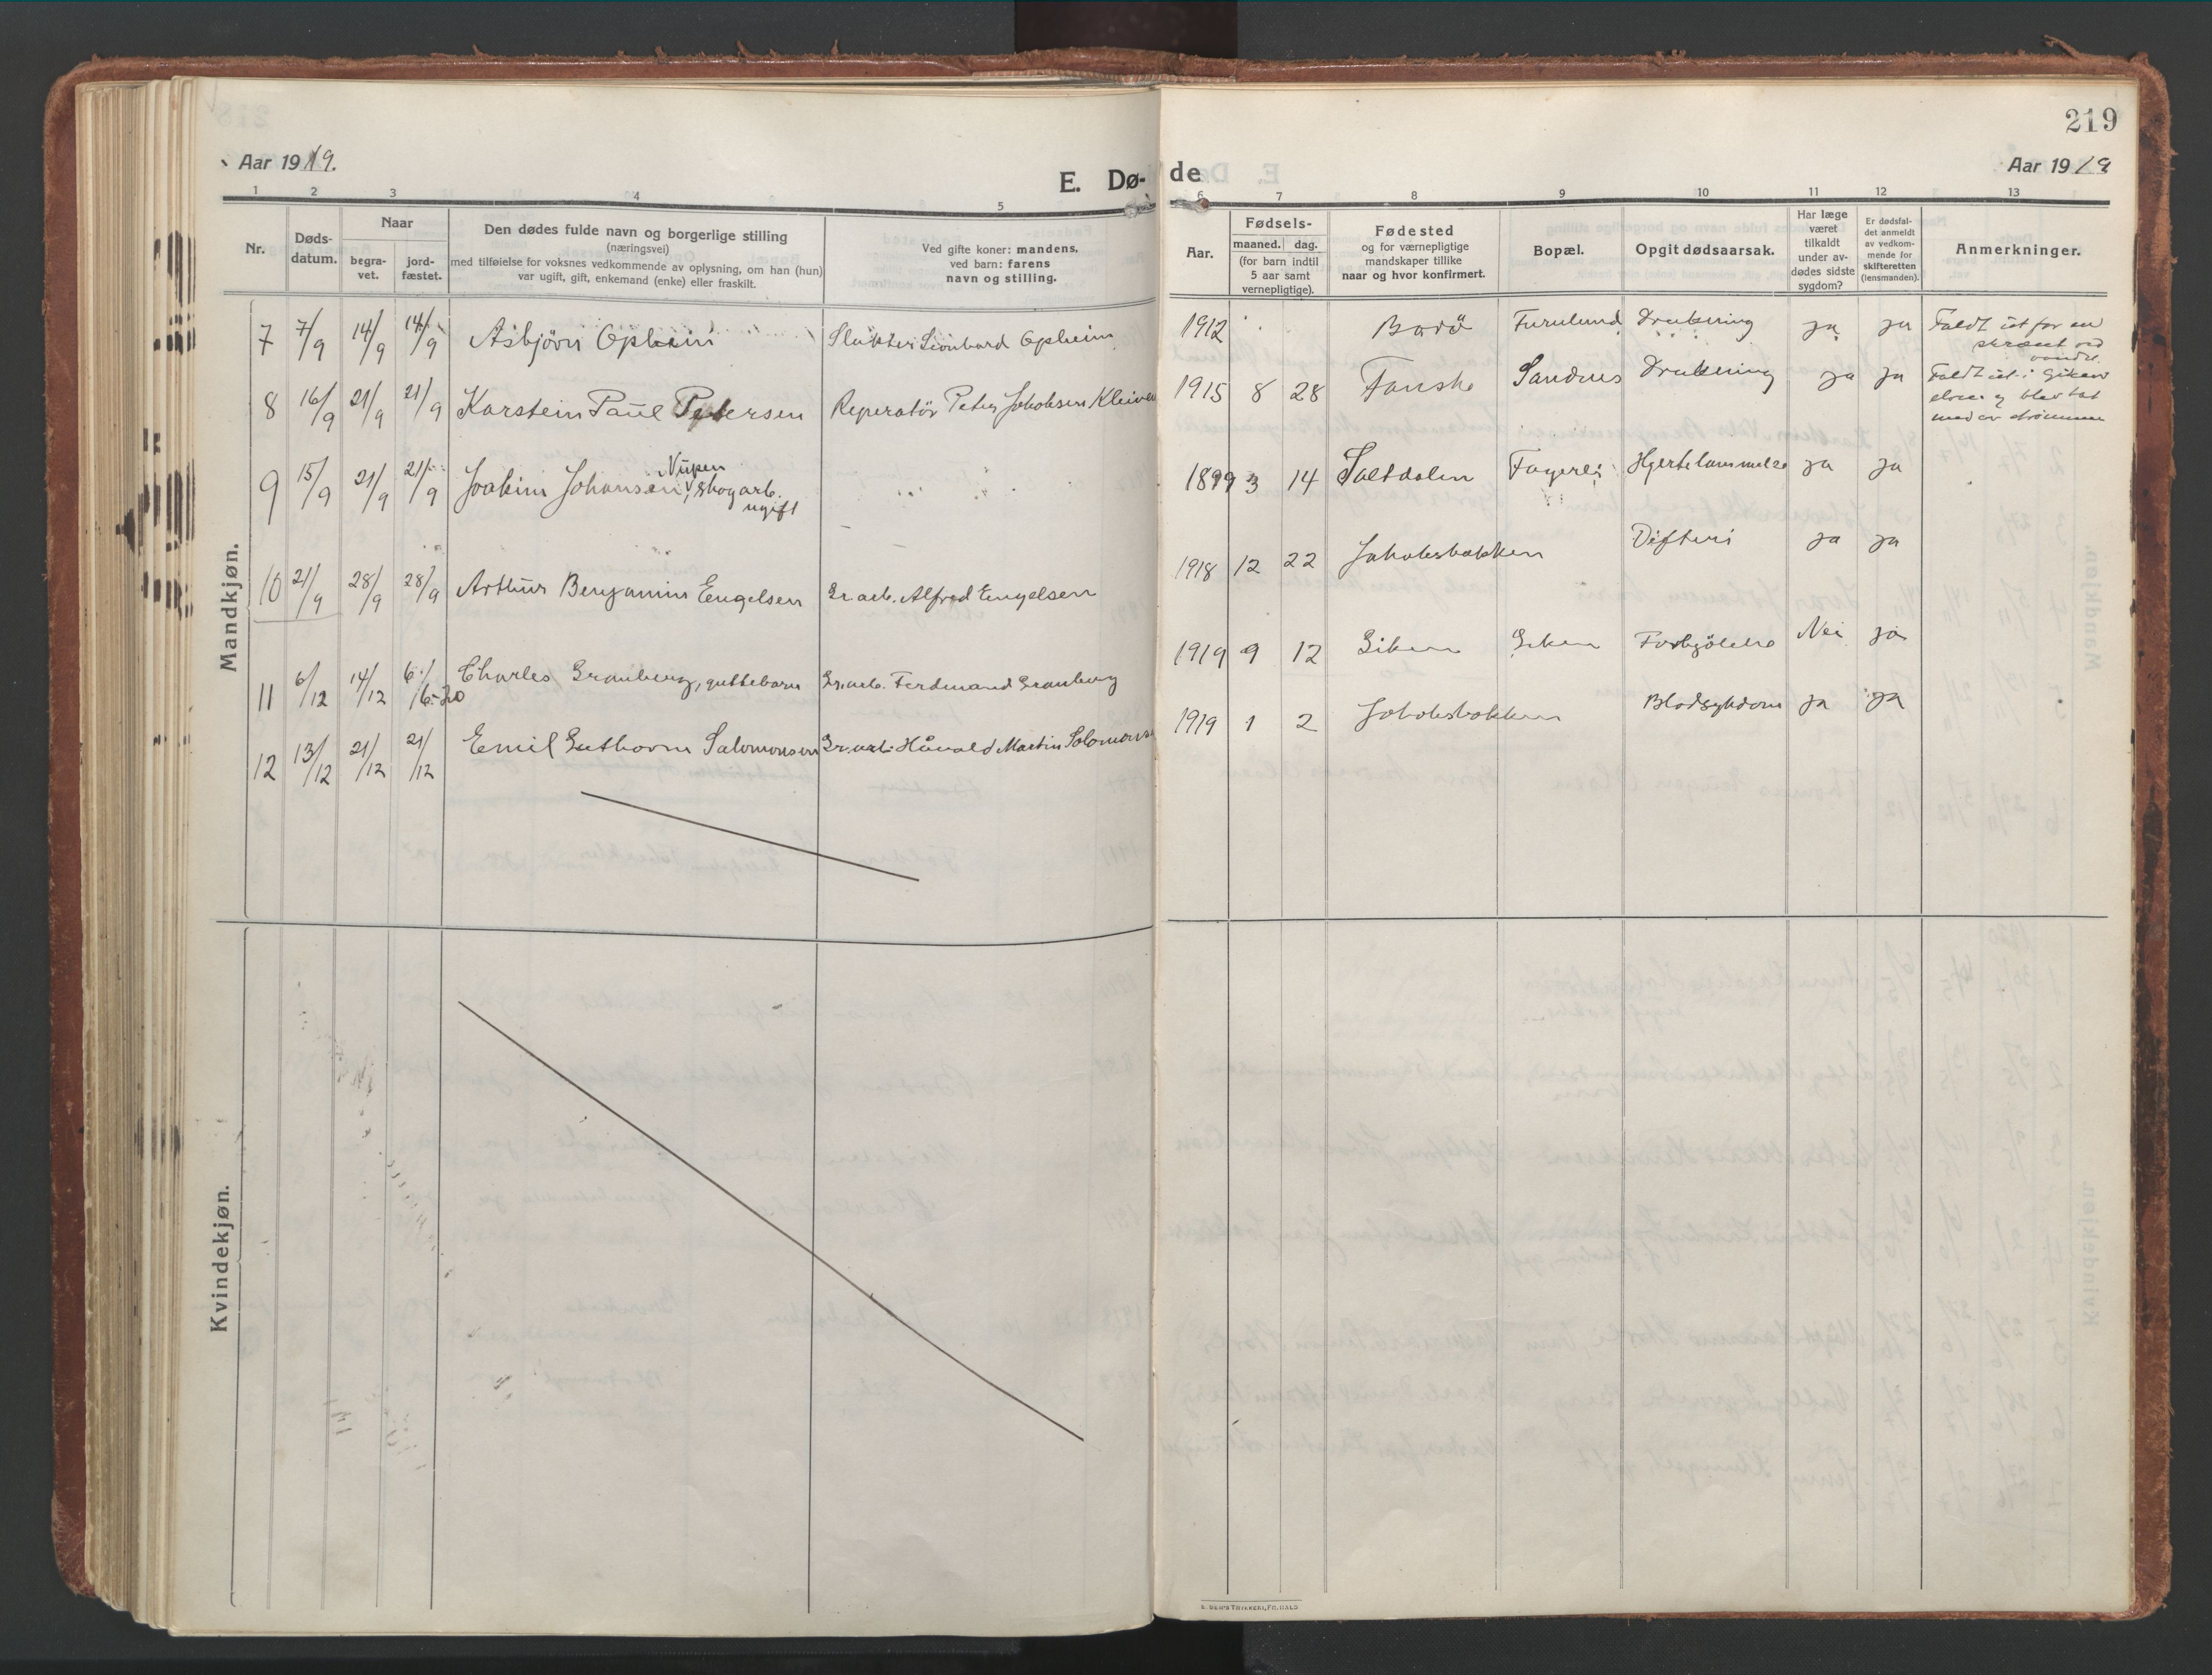 219
Aar 1919.
E. Dø-
de
Aar 1919
1 2 3 4 5 6 7 8 9 10 11 12 13
Nr.
Døds-
datum.
Naar
begra-
vet.
jord-
fæstet.
Den dødes fulde navn og borgerlige stilling
(næringsvei)
med tilføielse for voksnes vedkommende av oplysning, om han (hun)
var ugift, gift, enkemand (enke) eller fraskilt.
Ved gifte koner: mandens,
ved barn: farens
navn og stilling.
Aar.
Fødsels-
maaned. dag.
(for barn indtil
5 aar samt
vernepligtige).
Fødested
og for værnepligtige
mandskaper tillike
naar og hvor konfirmert.
Bopæl.
Opgit dødsaarsak.
Har læge
været
tilkaldt
under av-
dødes sidste
sygdom?
Er dødsfal-
det anmeldt
av vedkom-
mende for
skifteretten
(lensmanden).
Anmerkninger.
Mandkjøn.
7 7/9 14/9 14/9 Asbjörn Opheim Slakter Leonhard Opheim 1912 Bodö Furulund Drukning ja ja Faldt ut for en
skrænt ved
vandet.
8 16/9 21/9 21/9 Karstein Paul Petersen Reperatör Peter Jakobsen Kleiven 1915 8 28 Fauske Sandnes Drukning ja ja Faldt ut i Giken
elven og blev tat
med av strömmen
9 15/9 21/9 21/9 Joakim Johansen Nupen, skogarb.
ugift 1899 3 14 Saltdalen Fagerli Hjertelammelse ja ja
10 21/9 28/9 28/9 Arthur Benjamin Engelsen Gr.arb. Alfred Engelsen 1918 12 22 Jakobsbakken Difteri ja ja
11 6/12 14/12 6/6-20 Charles Granberg, guttebarn Gr.arb. Ferdinand Granberg 1919 9 12 Giken Giken Forkjölelse Nei ja
12 13/12 21/12 21/12 Emil Guthorm Salomonsen Gr.arb. Håvald Martin Salomonsen 1919 1 2 Jakobsbakken Blodsykdom ja ja
Kvindekjøn.